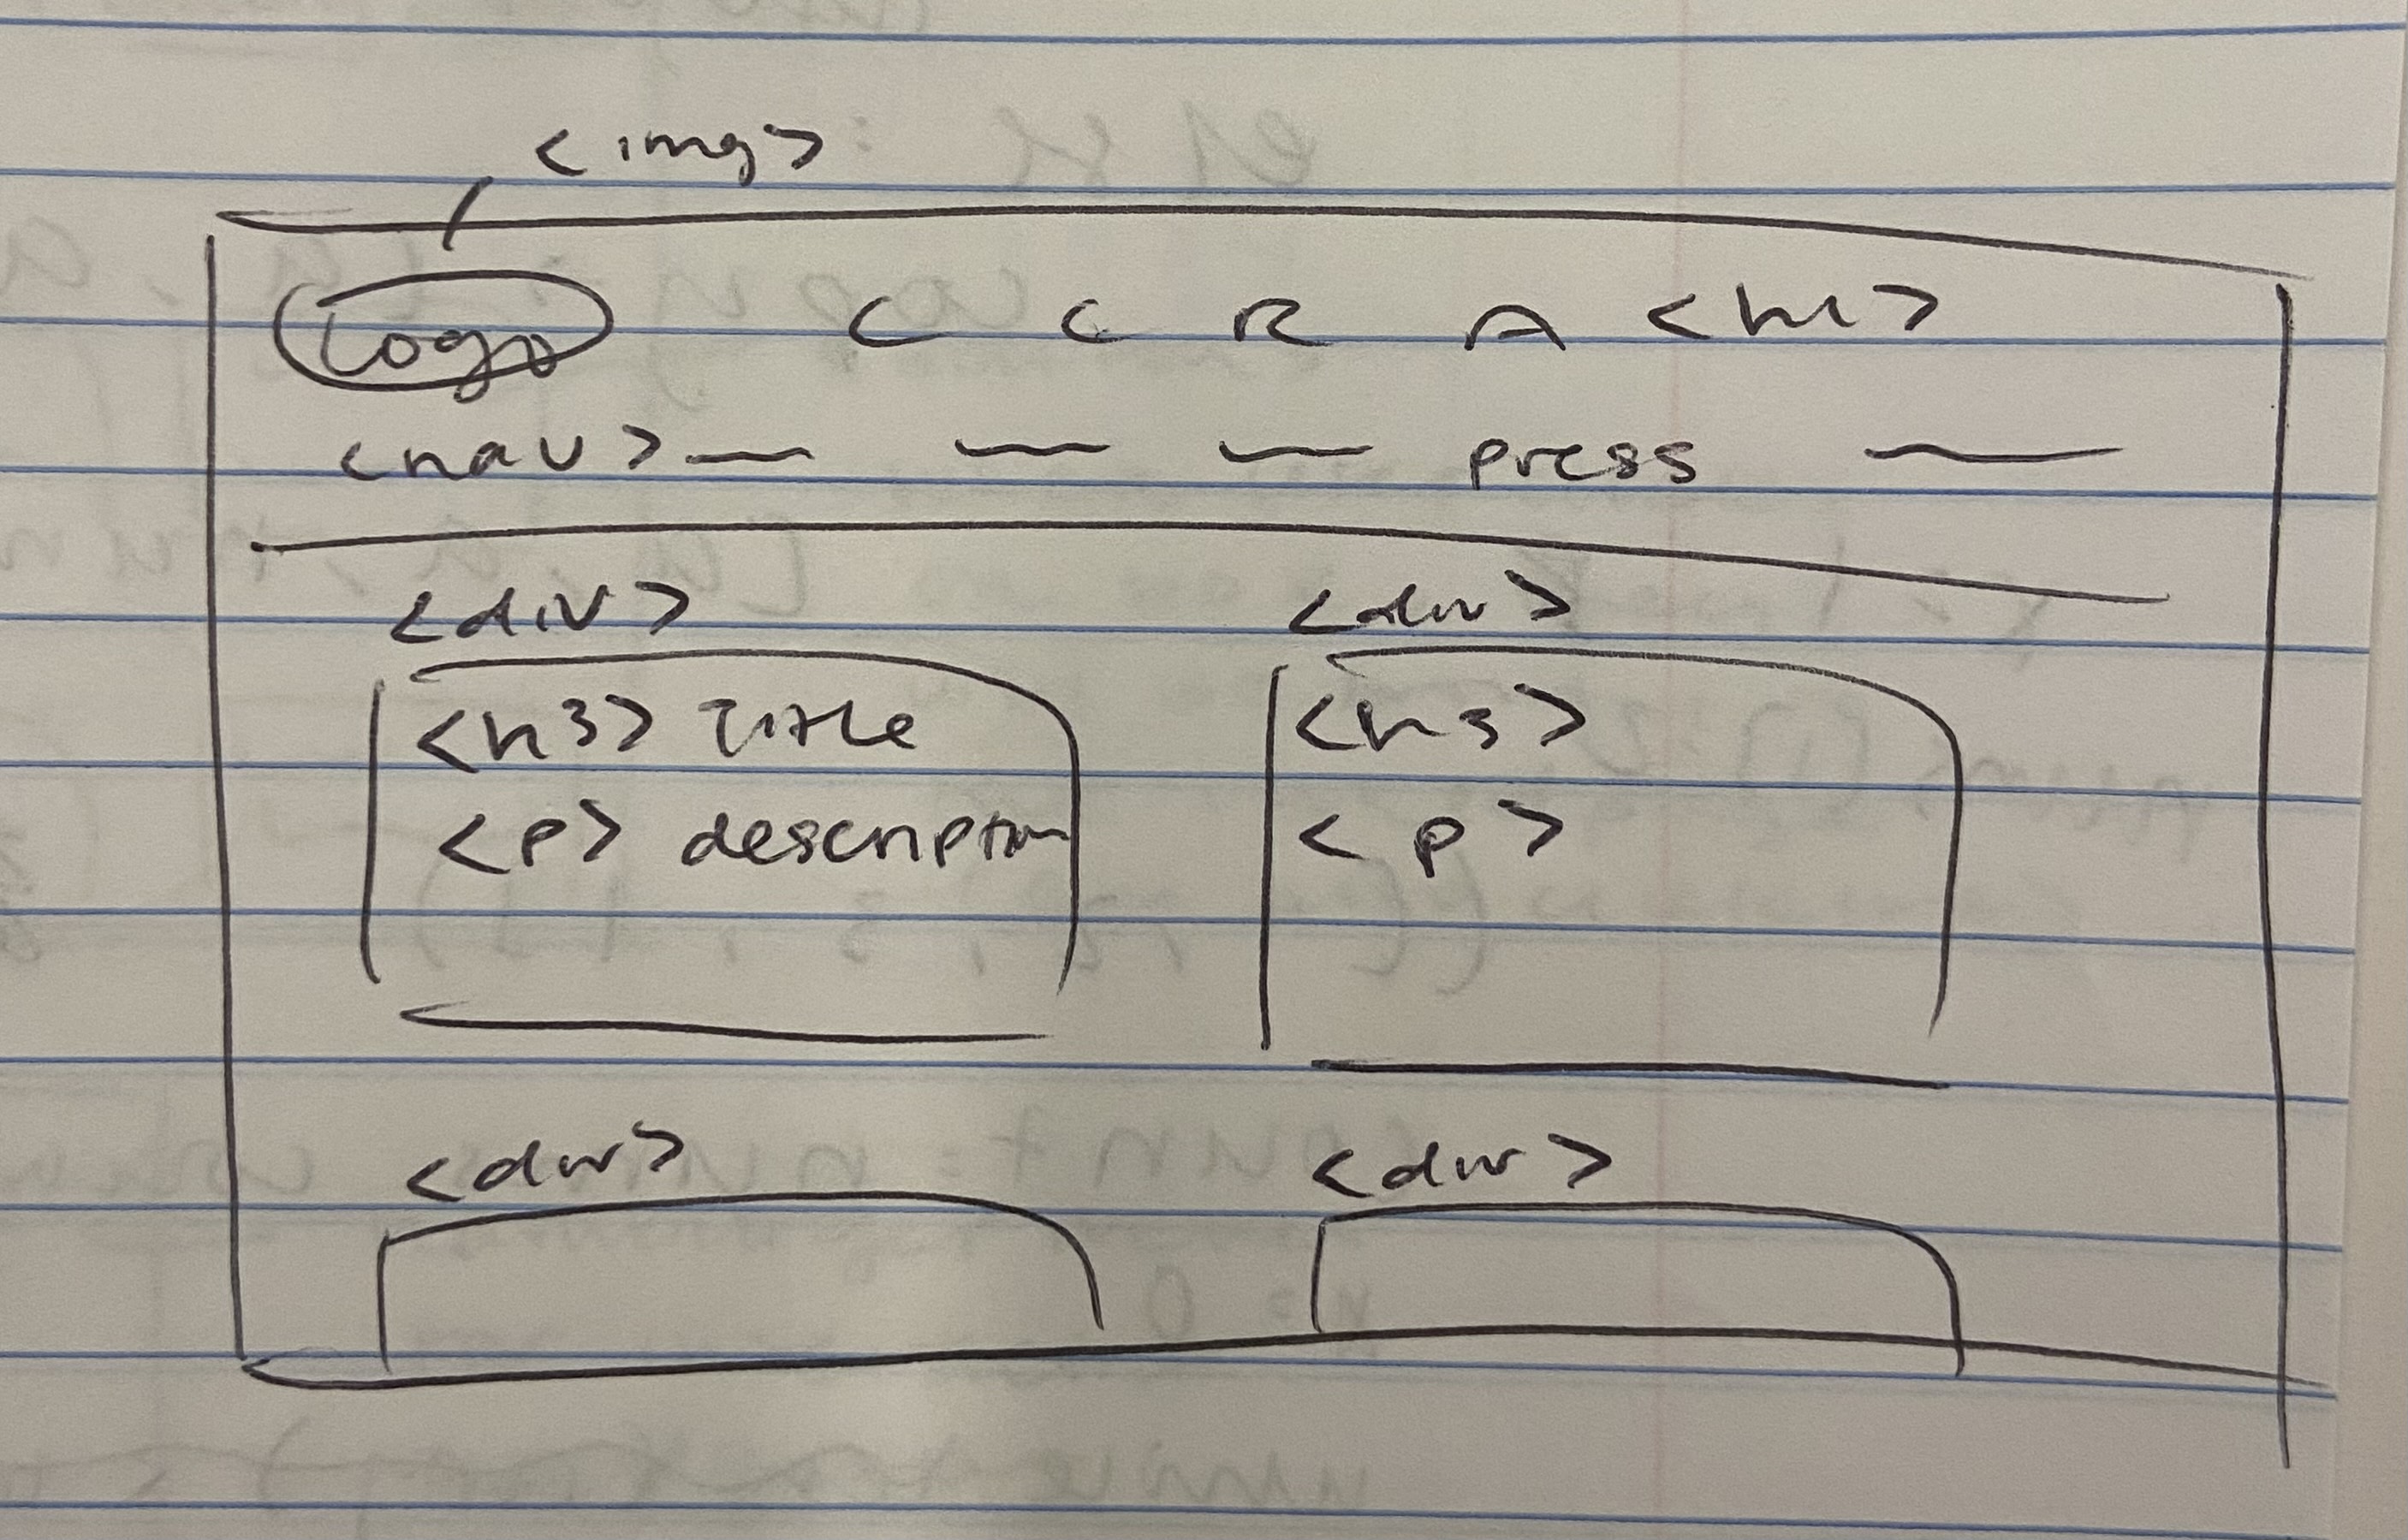 <img>
Logo C C R A <h1>
<nav> — — — press —
<div> <div>
<h3> Title <h3>
<p> description <p>
<div> <div>